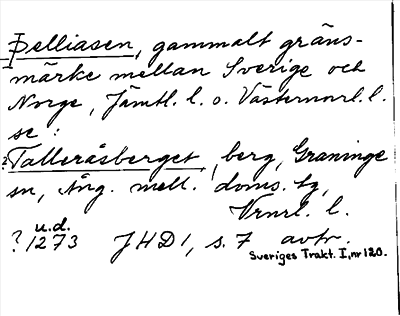 Þelliasen, gammalt gräns-
märke mellan Sverige och
Norge, Jämtl. l. o. Västernorrl. l.
se:
2 Talleråsberget, berg, Graninge
sn, Ång. mell. doms. tg,
Vrnrl. l.
u.d.
? 1273 JHD 1, s. 7 avtr.
Sveriges Trakt. I, nr 120.